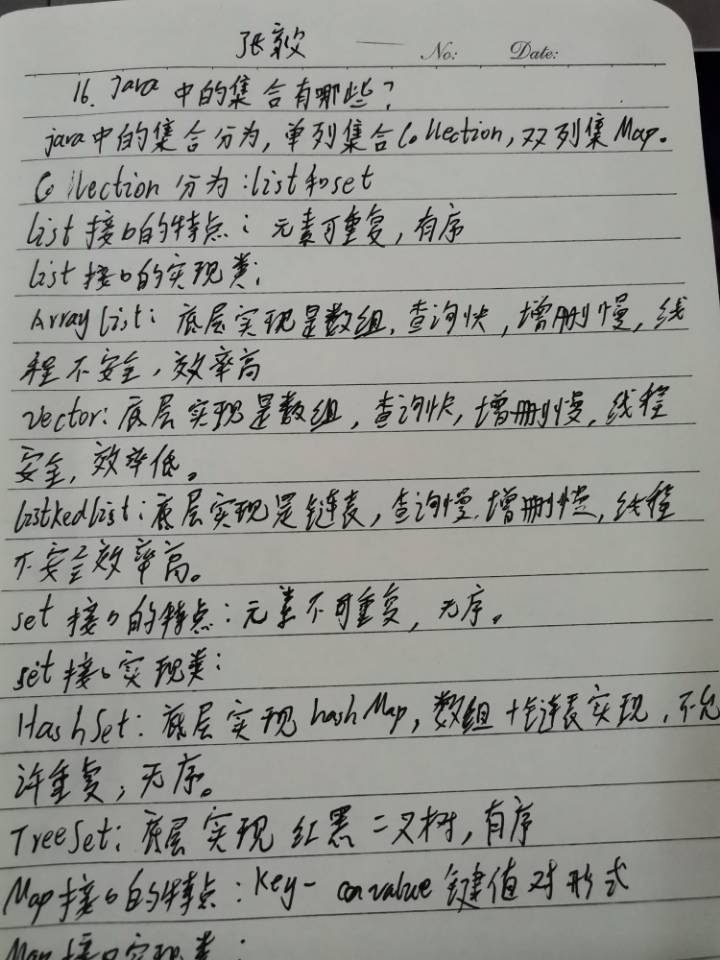 张毅 No: Date:
16. Java 中的集合有哪些?
java中的集合分为,单列集合Collection,双列集Map。
Collection 分为:list和set
List 接口的特点:元素可重复,有序
List 接口的实现类:
ArrayList:底层实现是数组,查询快,增删慢,线
程不安全,效率高
Vector:底层实现是数组,查询快,增删慢,线程
安全,效率低。
ListkedList:底层实现是链表,查询慢,增删快,线程
不安全效率高。
set 接口的特点:元素不可重复,无序。
set接口实现类:
HashSet:底层实现hashMap,数组+链表实现,不允
许重复,无序。
TreeSet:底层实现 红黑二叉树,有序
Map接口的特点:Key- value 键值对形式
Map接口实现类: